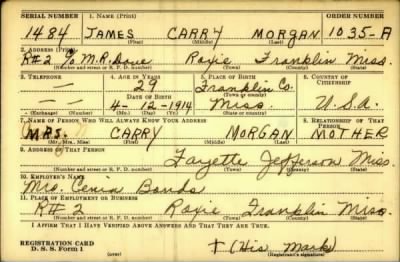 SERIAL NUMBER 1. NAME (Print) ORDER NUMBER
1484 JAMES CARRY MORGAN 1035-A
(First) (Middle) (Last)
2. ADDRESS (Print)
R#2 % M.R. Roxie Franklin Miss.
(Number and street or R. F. D. number) (Town) (County) (State)
3. TELEPHONE 4. AGE IN YEARS 5. PLACE OF BIRTH 6. COUNTRY OF CITIZENSHIP
29 Franklin Co.
DATE OF BIRTH (Town or county)
4-12-1914 Miss. U.S.A.
(Exchange) (Number) (Mo.) (Day) (Yr.) (State or country)
7. NAME OF PERSON WHO WILL ALWAYS KNOW YOUR ADDRESS 8. RELATIONSHIP OF THAT PERSON
MRS. CARRY MORGAN MOTHER
(Mr., Mrs., Miss) (First) (Middle) (Last)
9. ADDRESS OF THAT PERSON
Fayette Jefferson Miss.
(Number and street or R. F. D. number) (Town) (County) (State)
10. EMPLOYER'S NAME
Mrs. Bonds
11. PLACE OF EMPLOYMENT OR BUSINESS
R#2 Roxie Franklin Miss.
(Number and street or R. F. D. number) (Town) (County) (State)
I AFFIRM THAT I HAVE VERIFIED ABOVE ANSWERS AND THAT THEY ARE TRUE.
REGISTRATION CARD
D. S. S. Form 1 (over) † (His Mark)
(Registrant's signature)